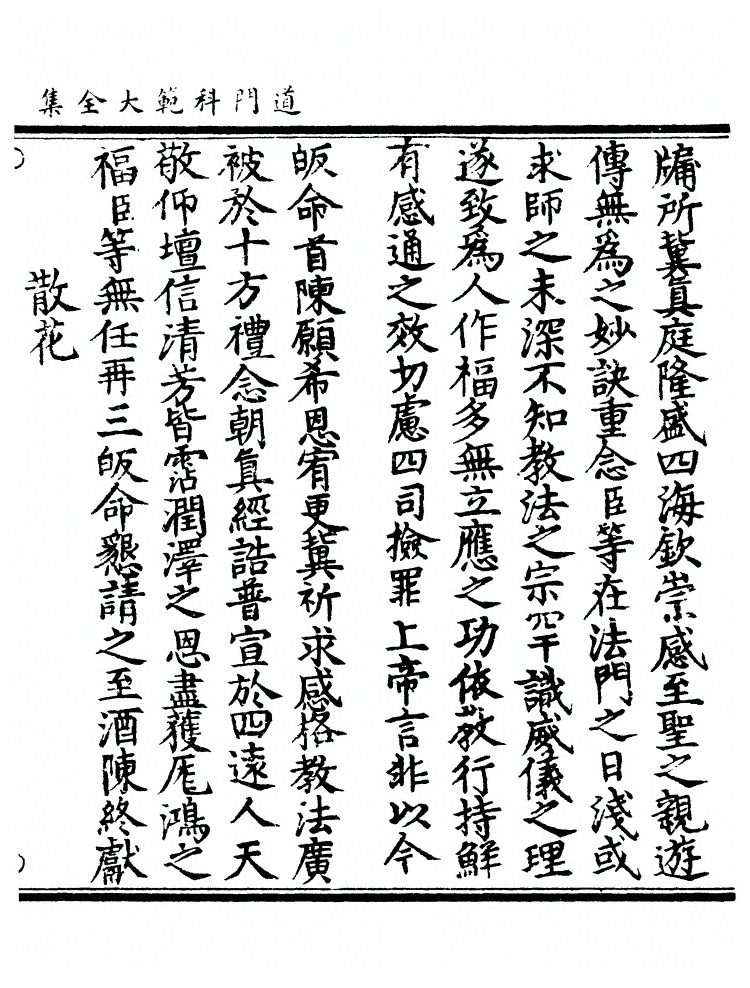 道門科範大全集
牖所冀真庭隆盛四海欽崇感至聖之親遊
傳無爲之妙訣重念臣等在法門之日淺或
求師之未深不知教法之宗罕識威儀之理
遂致爲人作福多無立應之功依教行持鮮
有感通之效切慮四司撿罪上帝言非以今
皈命首陳願希恩宥更冀祈求感格教法廣
被於十方禮念朝真經誥普宣於四遠人天
敬仰壇信清芳皆霑潤澤之恩盡獲厖鴻之
福臣等無任再三皈命懇請之至酒陳終獻
散花